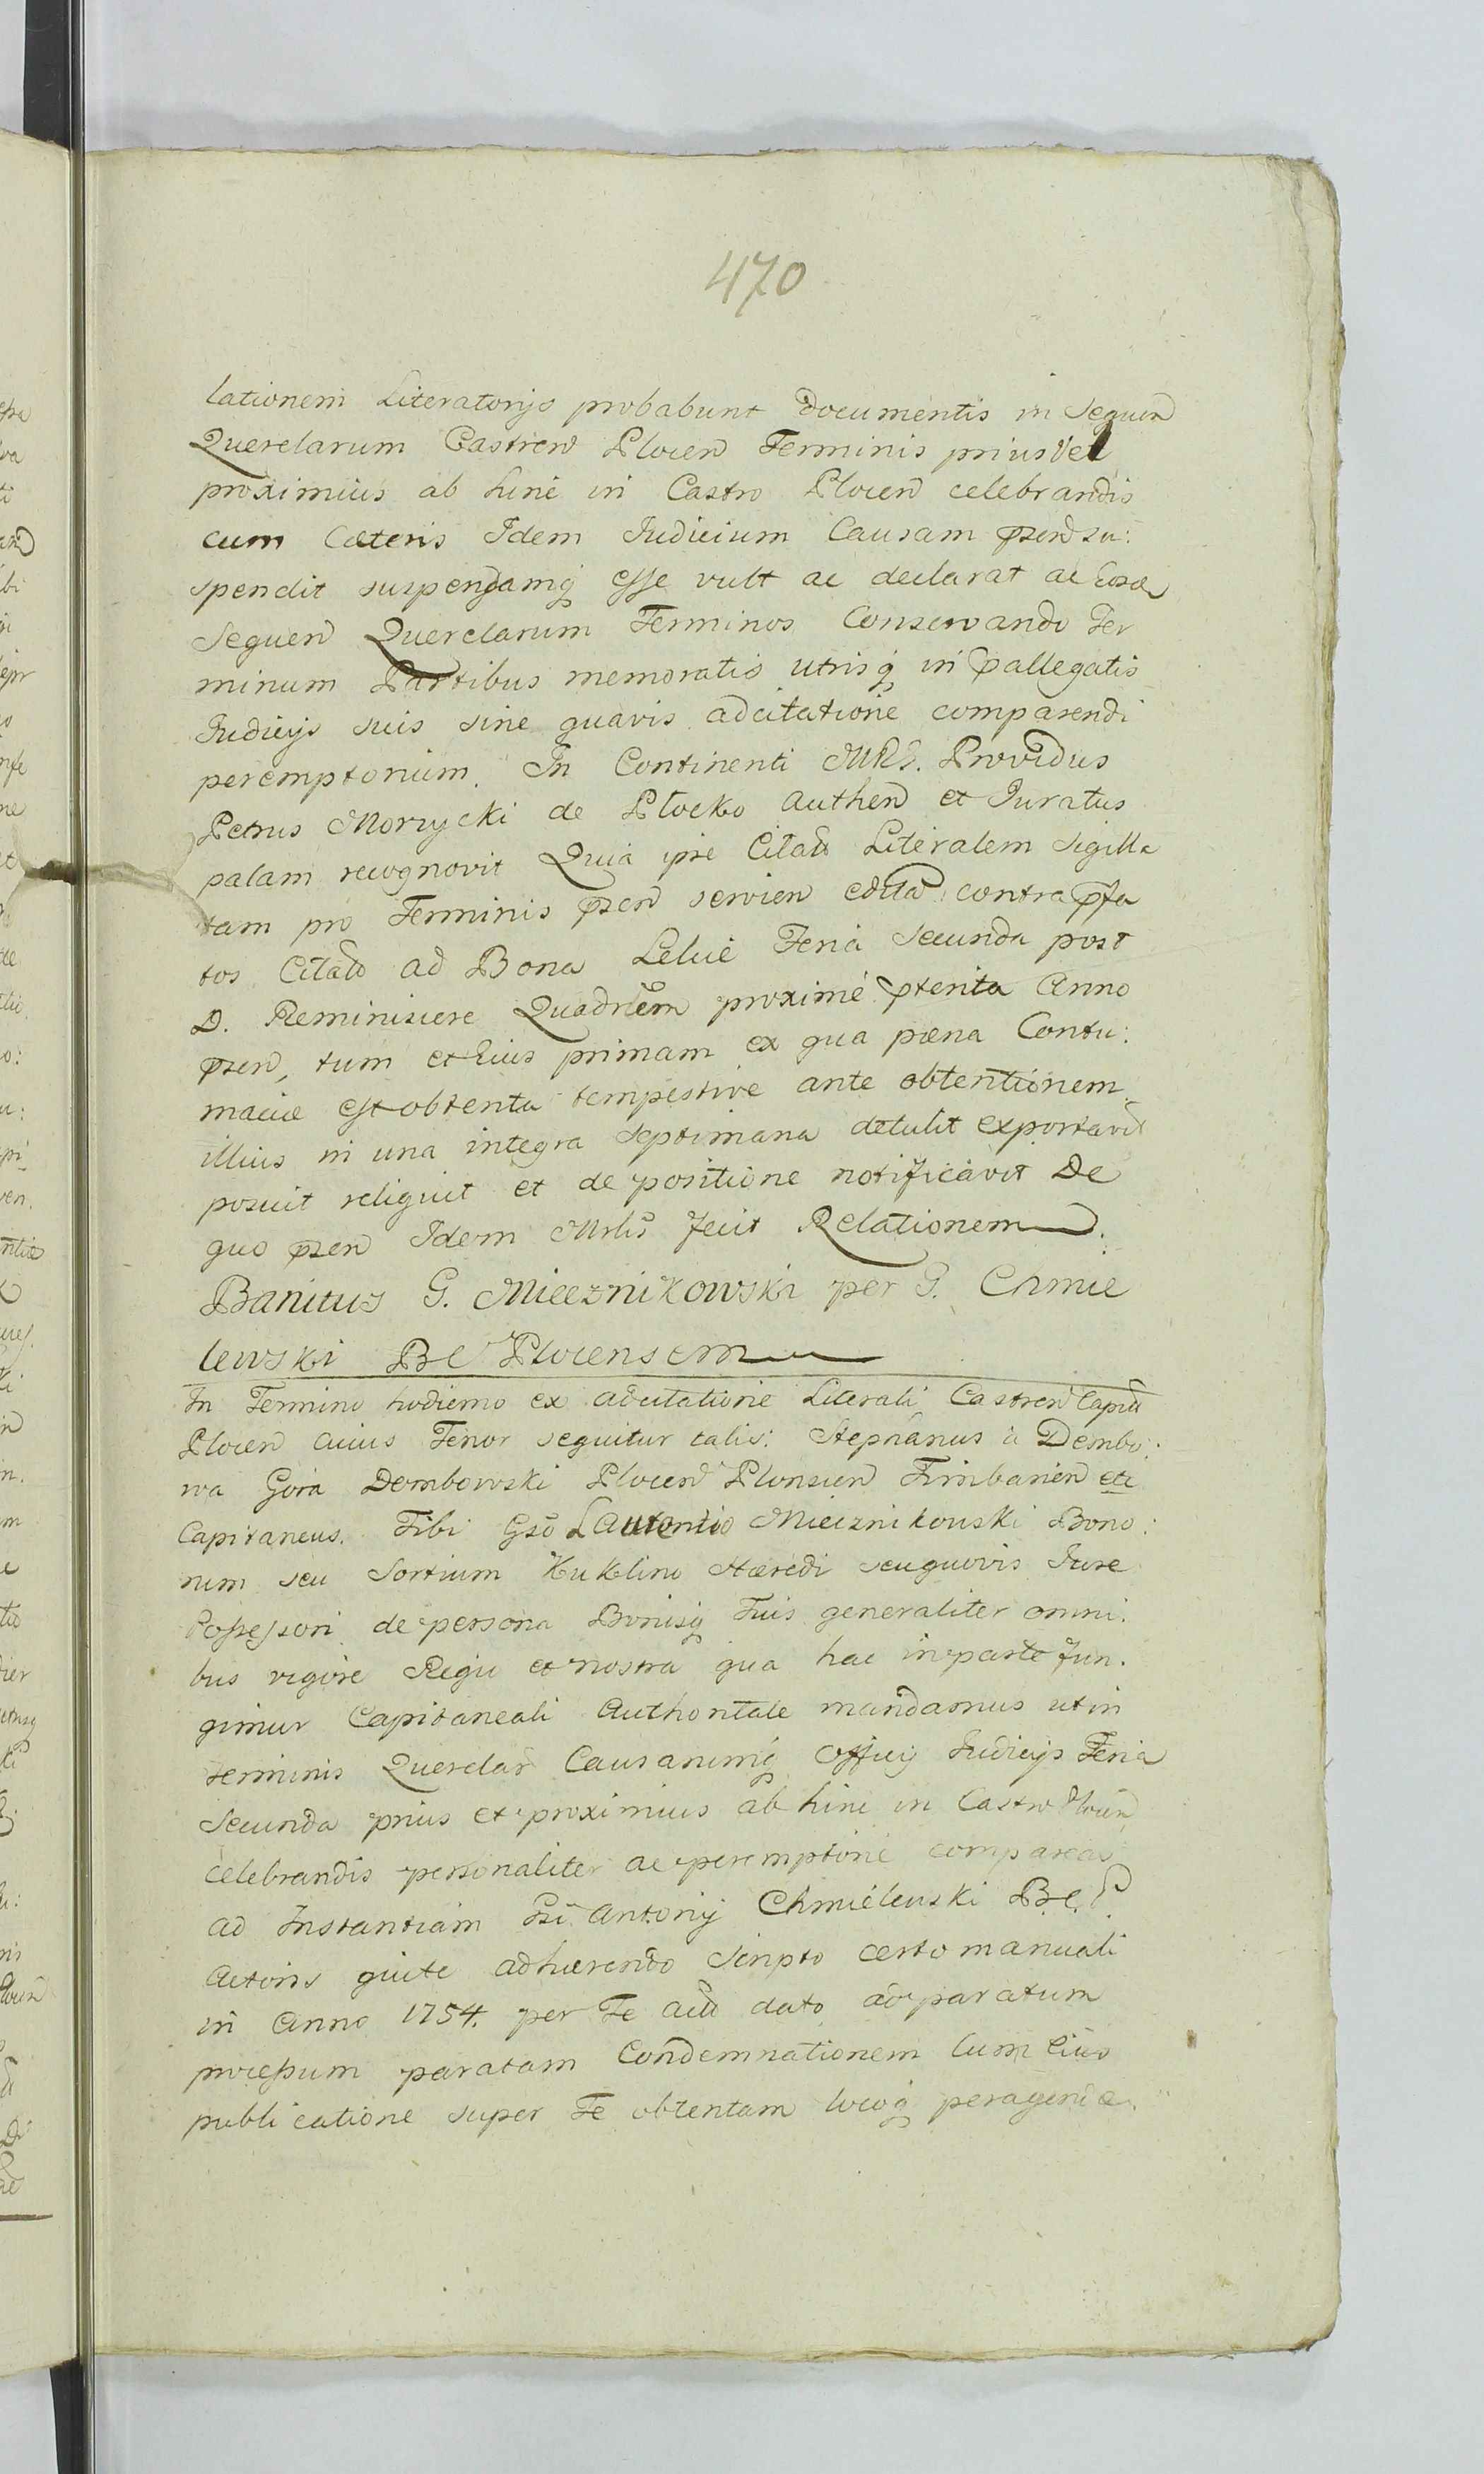 470
lationem Literatorijs probabunt documentis in Sequen
Querelarum Castren Plocen Terminis prius vel
proximius ab hinc in Castro Plocen celebrandis
cum Cæteris Idem Iudicium Causam przen su:
spendit suspensamq esse vult ac declarat ac
Sequen Querelarum Terminos Conservando Ter
minum Partibus memoratis utrisq in pallegatis
Iudicijs suis sine quavis adcitatione comparendi
peremptorium. In Continenti MRS. Providus
Petrus Morzycki de Plocko Authen et Iuratus
palam recognovit Quia ipse Citaō Literalem Sigilla
tam pro Terminis przen servien edita contra pfa
tos Citatō ad Bona Lelice Feria Secunda post
D. Reminiscere Quadrlem proxime pterita Anno
przen, tum et Eius primam ex qua pæna Contu:
maciæ est obtenta tempestive ante obtentionem
illius in una integra Septimana detulit exportavit
posuit reliquit et de positione notificavit De
quo przen Idem Mrlis fecit Relationem.
Banitus G. Miecznikowski per G. Chmie
lewski BC Plocensem
In Termino hodierno ex adcitatione Literali Castren Capitū
Plocen cuius Tenor sequitur talis: Stephanus à Dembo:
wa Gora Dembowski Plocen Plonscen etc
Capitaneus. Tibi Gso Laurentio Miecznikouski Bono:
rum seu Sortium Kuklino Hæredi seu quovis Iure
Possessori de persona Bonisq Tuis generaliter omni:
bus vigore Regia et nostra qua hac in parte fun:
gimur Capitaneali Authoritate mandamus ut in
terminis Querelar Causarumq Officij Iudicijs Feria
Secunda prius et proximius ab hinc in Castro Plocen
celebrandis personaliter ac peremptorie compareas
ad Instantiam Antonij Chmielewski B.C.P.
Actoris qui te adhærendo Scripto certo manuali
in Anno 1754. per Te dato ad paratum
processum paratam Condemnationem cum Eius
publicatione super Te obtentam locoq peragenæ